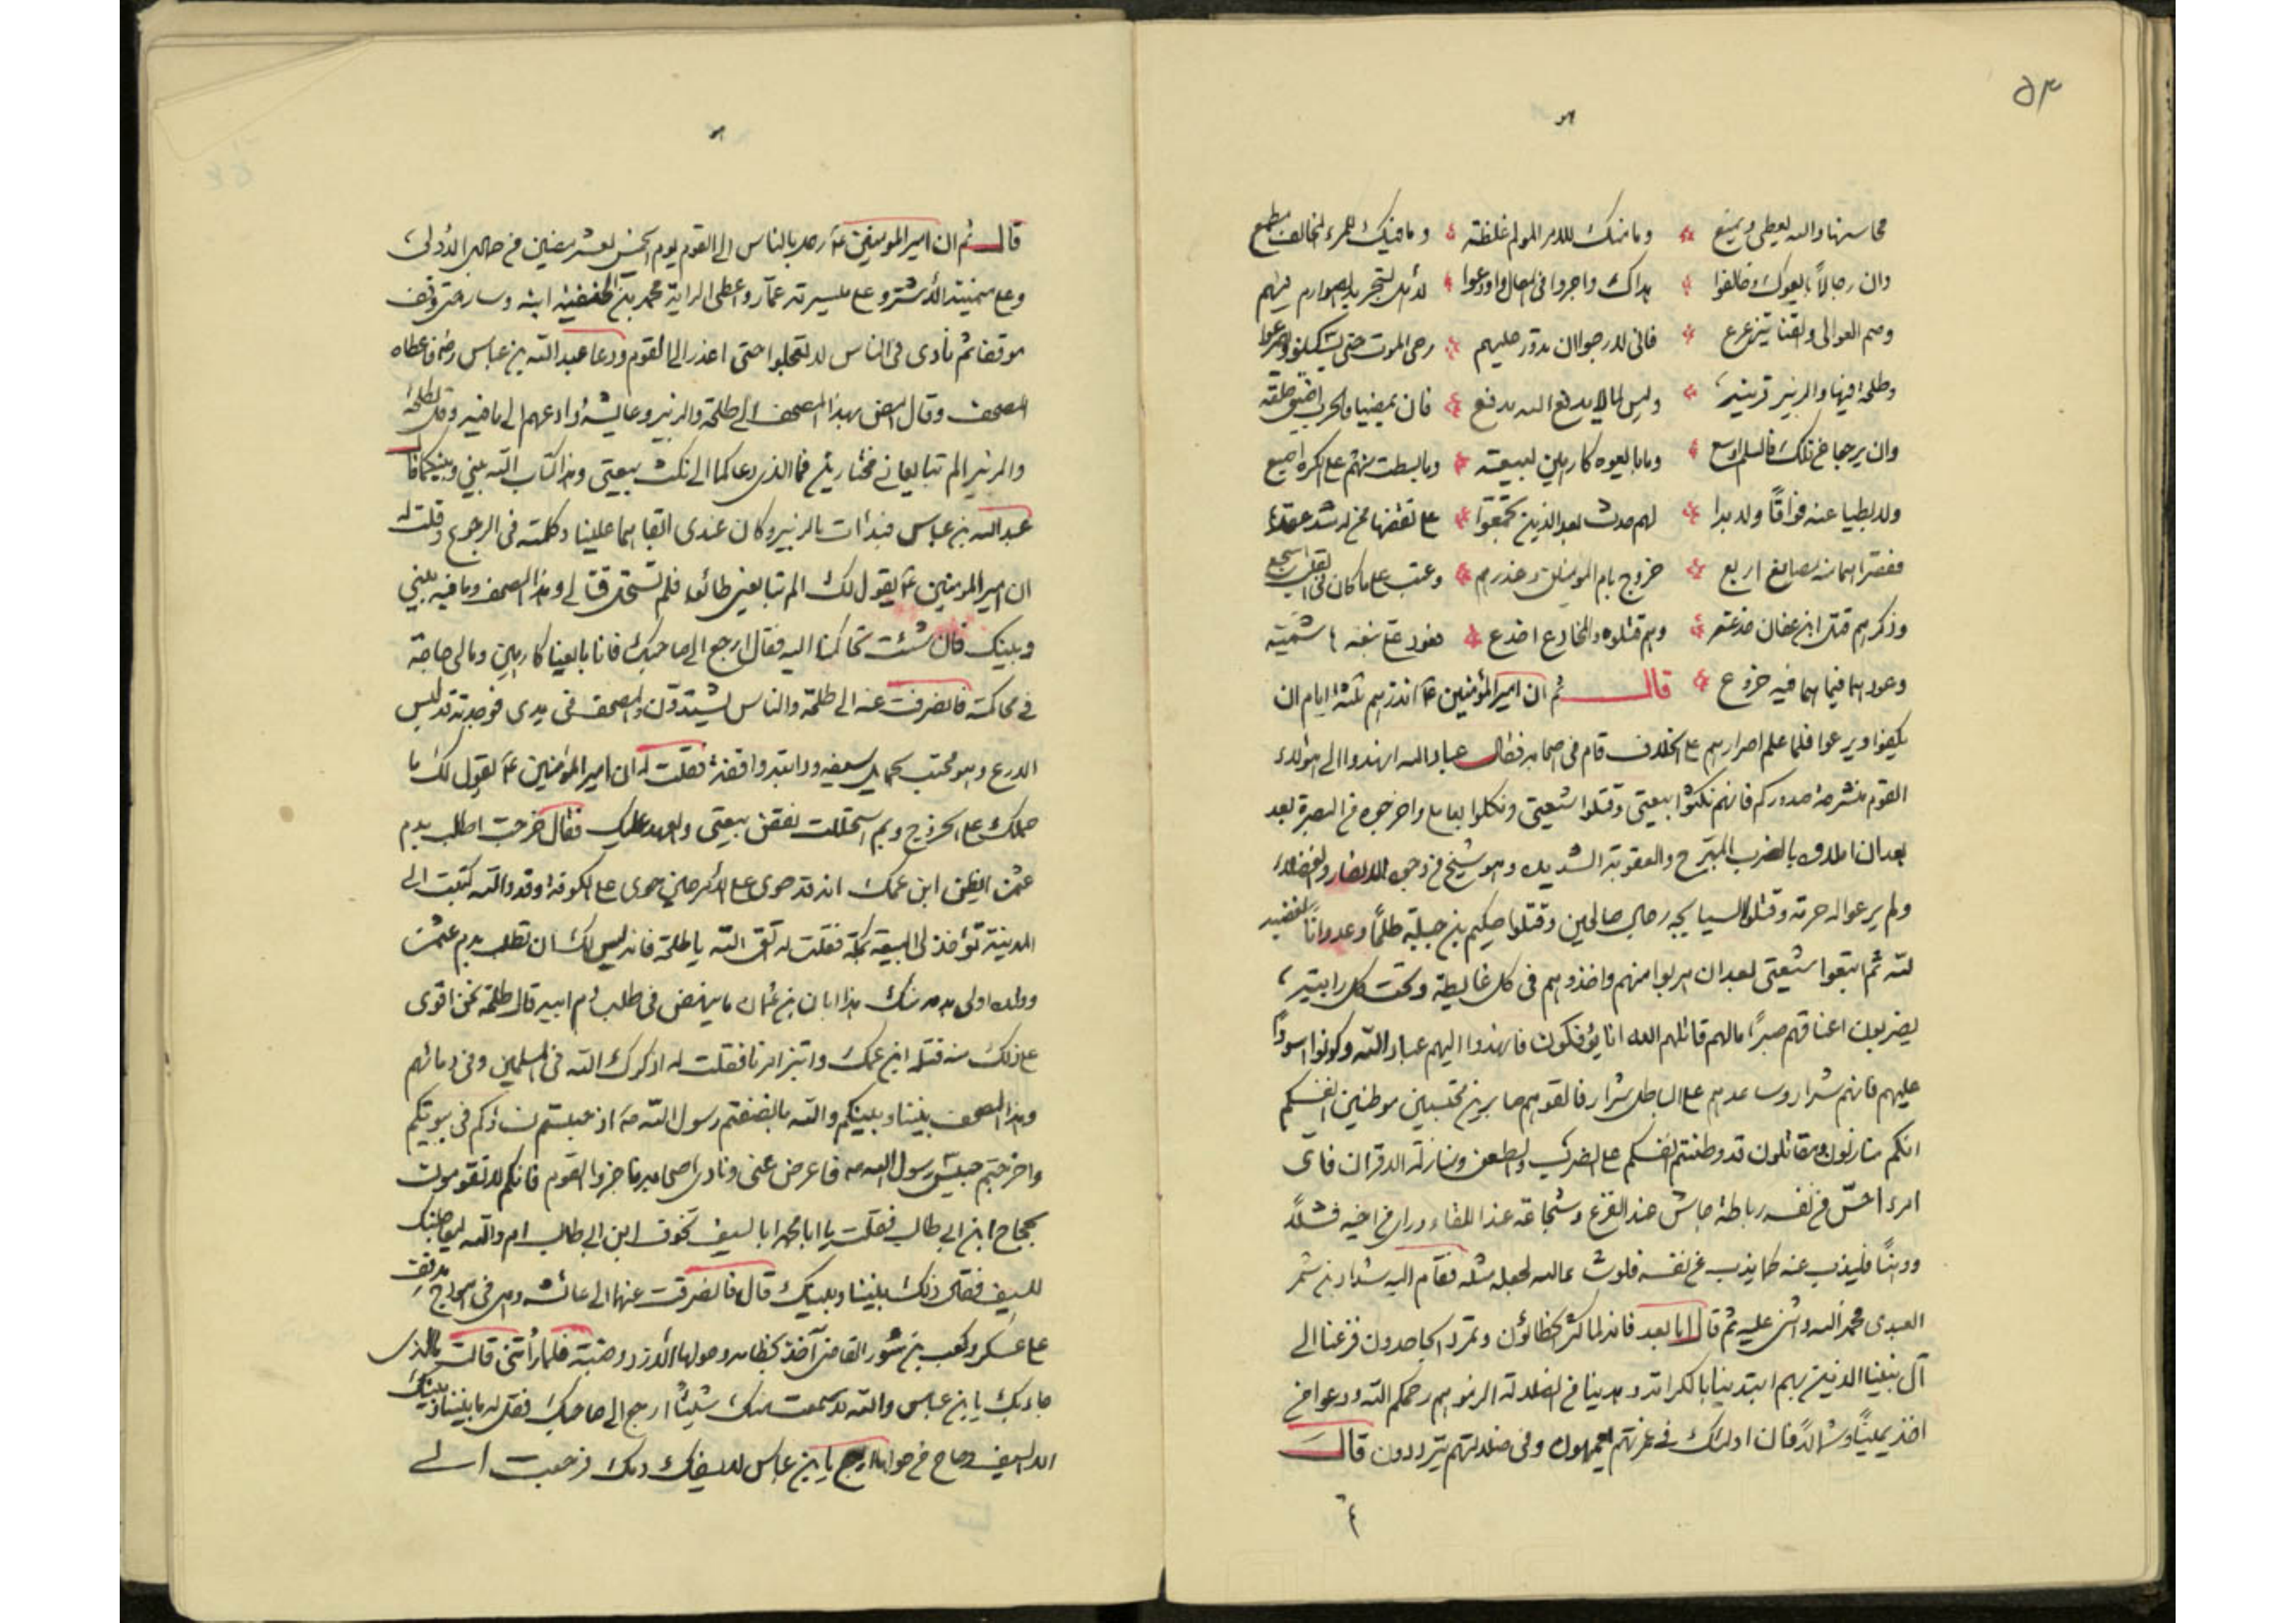 ٥٣
محاسنها والله يعطي ويمنع وما منك للامر المولم غلظة وما فيك للمرء المخالف مطمع
وان رجالا بايعوك وخالفوا هداك واجروا في الضلال واوضعوا لأهل لتجريد الصوارم فيهم
وسم العوالي والقنا تتزعزع فاني لارجو ان تدور عليهم رحى الموت حتى يسكنوا ويصرعوا
وطلحة فيها والزبير قرينه وليس لما لا يدفع الله مدفع فان يمضيا فالحرب اضيق حلقة
وان يرجعا عن تلك فالسلم اوسع وما بايعوه كارهين لبيعته وما بسطت منهم على الكره اصبع
ولا بطيا عنه فواقا ولا بدا لهم حدث بعد الذين تجمعوا على نقضها ممن له شد عقدها
فقصراهما منه اصابع اربع خروج بام المومنين وغدرهم وعتب على ما كان في القلب اشجع
وذكرهم قتل ابن عفان خدعة وهم قتلوه والمخادع اخدع فعود على نبعة هاشمية
وعودهما فيما هما فيه خروع قال ثم ان امير المؤمنين ع انذرهم ثلثة ايام ان
يكفوا ويرعوا فلما علم اصرارهم على الخلاف قام في اصحابه فقال عباد الله انهدوا الى هولاء
القوم منشرحة صدوركم فانهم نكثوا بيعتي وقتلوا شيعتي ونكلوا بعاملي واخرجوه من البصرة بعد
بعد ان المدوه بالضرب المبرح والعقوبة الشديدة وهو شيخ من وجوه الانصار والفضلاء
ولم يرعوا له حرمة وقتلوا السيابجة رجالا صالحين وقتلوا حكيم بن جبلة ظلما وعدوانا لغضبه
لله ثم اتبعوا شيعتي بعد ان هربوا منهم واخذوهم في كل غايطة وتحت كل رابية
يضربون اعناقهم صبرا ما لهم قاتلهم الله انى يؤفكون فانهدوا اليهم عباد الله وكونوا اسودا
عليهم فانهم شرار ومساعدهم على الباطل شرار فالقوهم صابرين محتسبين موطنين انفسكم
انكم منازلون ومقاتلون قد وطنتم انفسكم على الضرب والطعن ومنازلة الاقران فاي
امرء احس من نفسه رباطة جاش عند الفزع وشجاعة عند اللقاء وراى من اخيه فشلا
ووهنا فليذب عنه كما يذب عن نفسه فلو شاء الله لجعله مثله فقام اليه شداد بن شمر
العبدي فحمد الله واثنى عليه ثم قال اما بعد فانه لما كثر الخطاؤن وتمرد الجاحدون فزعنا الى
آل نبينا الذين بهم ابتدينا بالكرامة وهدينا من الضلالة الزموهم رحمكم الله ودعوا من
اخذ يمينا وشمالا فان اولئك في غمرتهم يعمهون وفي ضلالتهم يترددون قال
قال ثم ان امير المومنين ع رحل بالناس الى القوم يوم الخميس لعشر مضين من جمادى الاولى
وعلى ميمنته الأشتر وعلى ميسرته عمار واعطى الراية محمد بن الحنفية ابنه وسار حتى وقف
موقفا ثم نادى في الناس لا تعجلوا حتى اعذر الى القوم ودعا عبد الله بن عباس رض فاعطاه
المصحف وقال امض بهذا المصحف الى طلحة والزبير وعايشة وادعهم الى ما فيه وقل لطلحة
والزبير الم تبايعاني مختارين فما الذي دعاكما الى نكث بيعتي وهذا كتاب الله بيني وبينكما قال
عبد الله بن عباس فبدأت بالزبير وكان عندي ابقاهما علينا وكلمته في الرجوع وقلت له
ان امير المومنين ع يقول لك الم تبايعني طائعا فلم تستحل قتالي وهذا المصحف وما فيه بيني
وبينك فان شئت تحاكمنا اليه فقال ارجع الى صاحبك فانا بايعنا كارهين وما لي حاجة
في محاكمته فانصرفت عنه الى طلحة والناس يشتدون والمصحف في يدي فوجدته قد لبس
الدرع وهو محتب بحمايل سيفه ودابته واقفة فقلت له ان امير المؤمنين ع يقول لك ما
حملك على الخروج وبم استحللت نقض بيعتي والعهد عليك فقال خرجت اطلب بدم
عثمن ايظن ابن عمك انه قد حوى على الأمر حين حوى على الكوفة وقد والله كتبت الى
المدينة تؤخذ لي البيعة بمكة فقلت له اتق الله يا طلحة فانه ليس لك ان تطلب بدم عثمن
وولده اولى بدمه منك هذا ابان بن عثمان ما ينهض في طلب دم ابيه قال طلحة نحن اقوى
على ذلك منه قتله ابن عمك وابتز امرنا فقلت له اذكرك الله في المسلمين وفي دمائهم
وهذا المصحف بيننا وبينكم والله ما انصفتم رسول الله ص اذ حبستم نساءكم في بيوتكم
واخرجتم حبيس رسول الله ص فاعرض عني ونادى اصحابه ناجزوا القوم فانكم لا تقومون
بحجاج ابن ابي طالب فقلت يا ابا محمد ابالسيف تخوف ابن ابي طالب ام والله ليعاجلنك
للسيف فقال ذلك بيننا وبينك قال فانصرفت عنهما الى عائشة وهي في هودج مدفف
على عسكر وكعب بن سور القاضي آخذ بخطامه وحولها الأزد وضبة فلما رأتني قالت ما الذي
جاء بك يا بن عباس والله لا سمعت منك شيئا ارجع الى صاحبك فقل له ما بيننا وبينك
الا السيف وصاح من حولها ارجع يا بن عباس لا يسفك دمك فرجعت الى